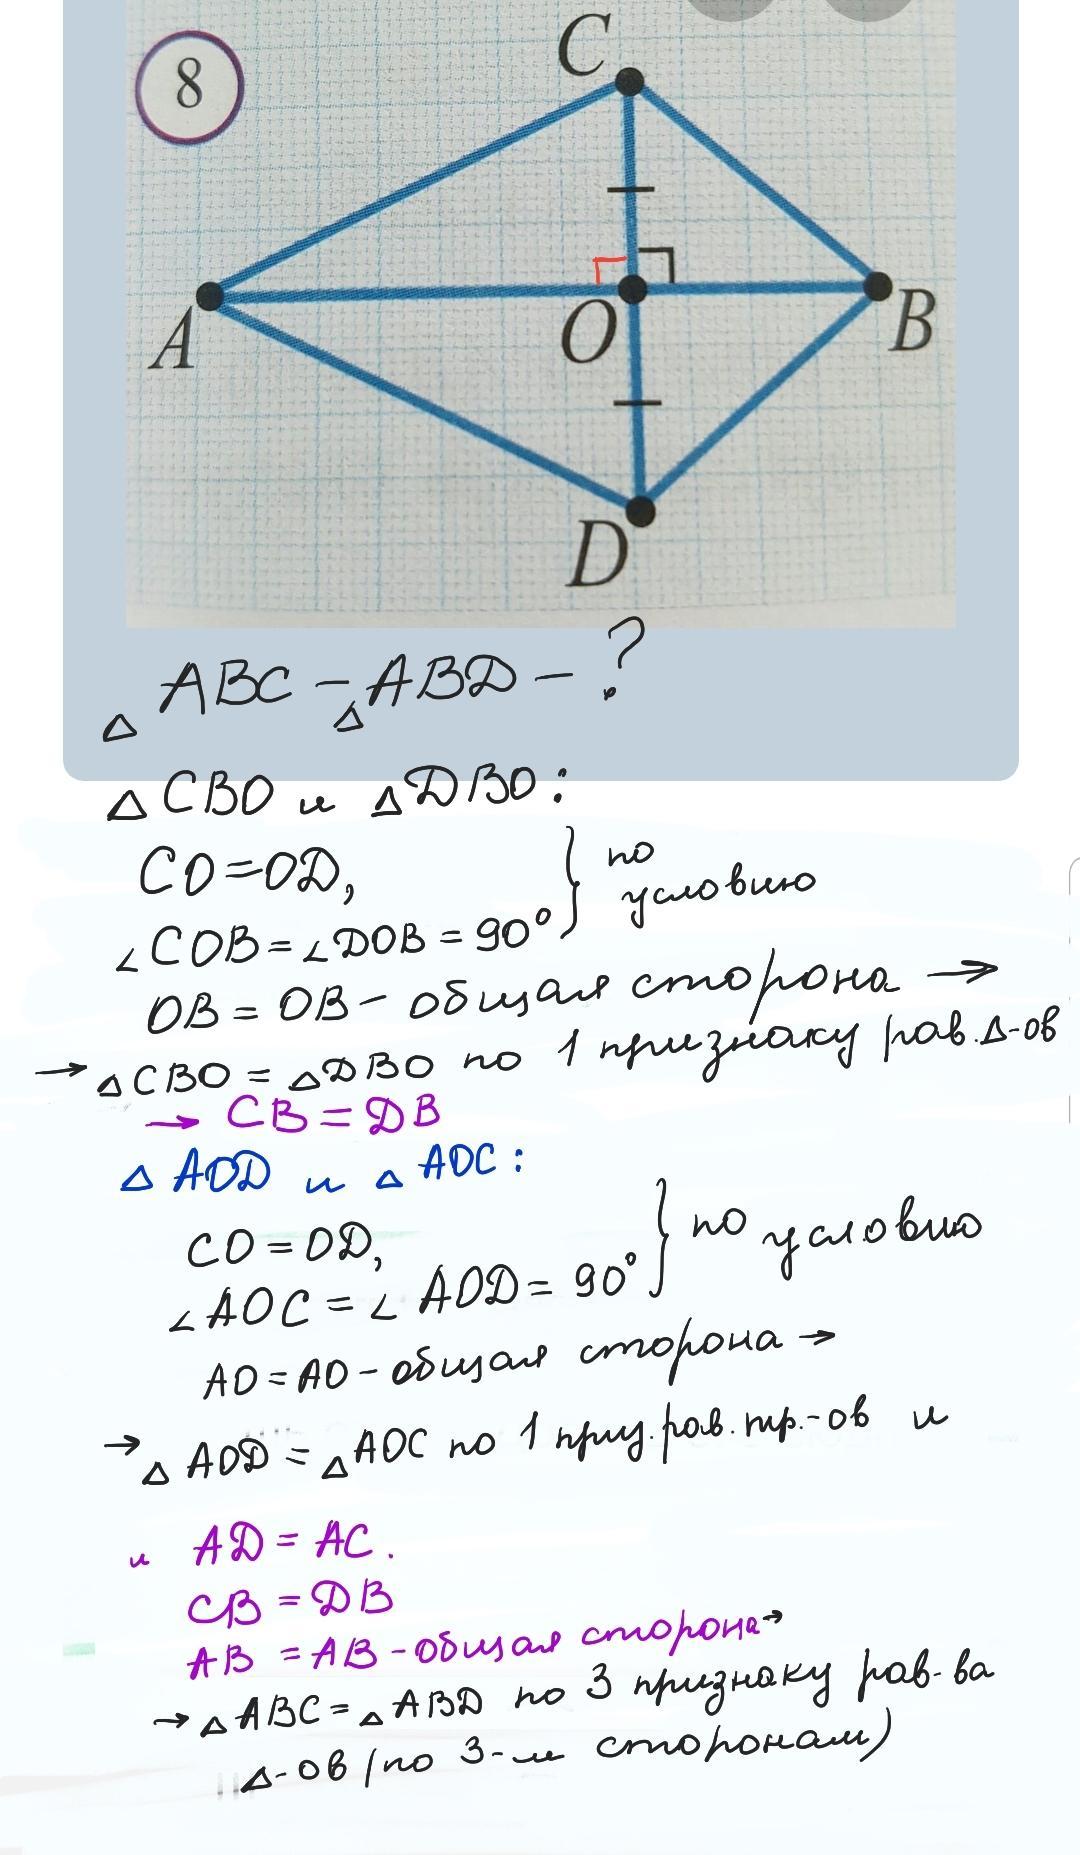 8
C
A
O
B
D
△ABC - △ABD - ?
△CBO и △DBO:
CO=OD, } по
∠COB=∠DOB=90° условию
OB=OB- общая сторона →
→ △CBO = △DBO по 1 признаку рав.△-ов
→ CB=DB
△AOD и △AOC:
CO=OD, } по условию
∠AOC=∠AOD=90°
AO=AO-общая сторона →
→ △AOD=△AOC по 1 призн.рав.тр.-ов и
и AD=AC.
CB=DB
AB=AB-общая сторона→
→ △ABC=△ABD по 3 признаку рав-ва
△-ов (по 3-м сторонам)